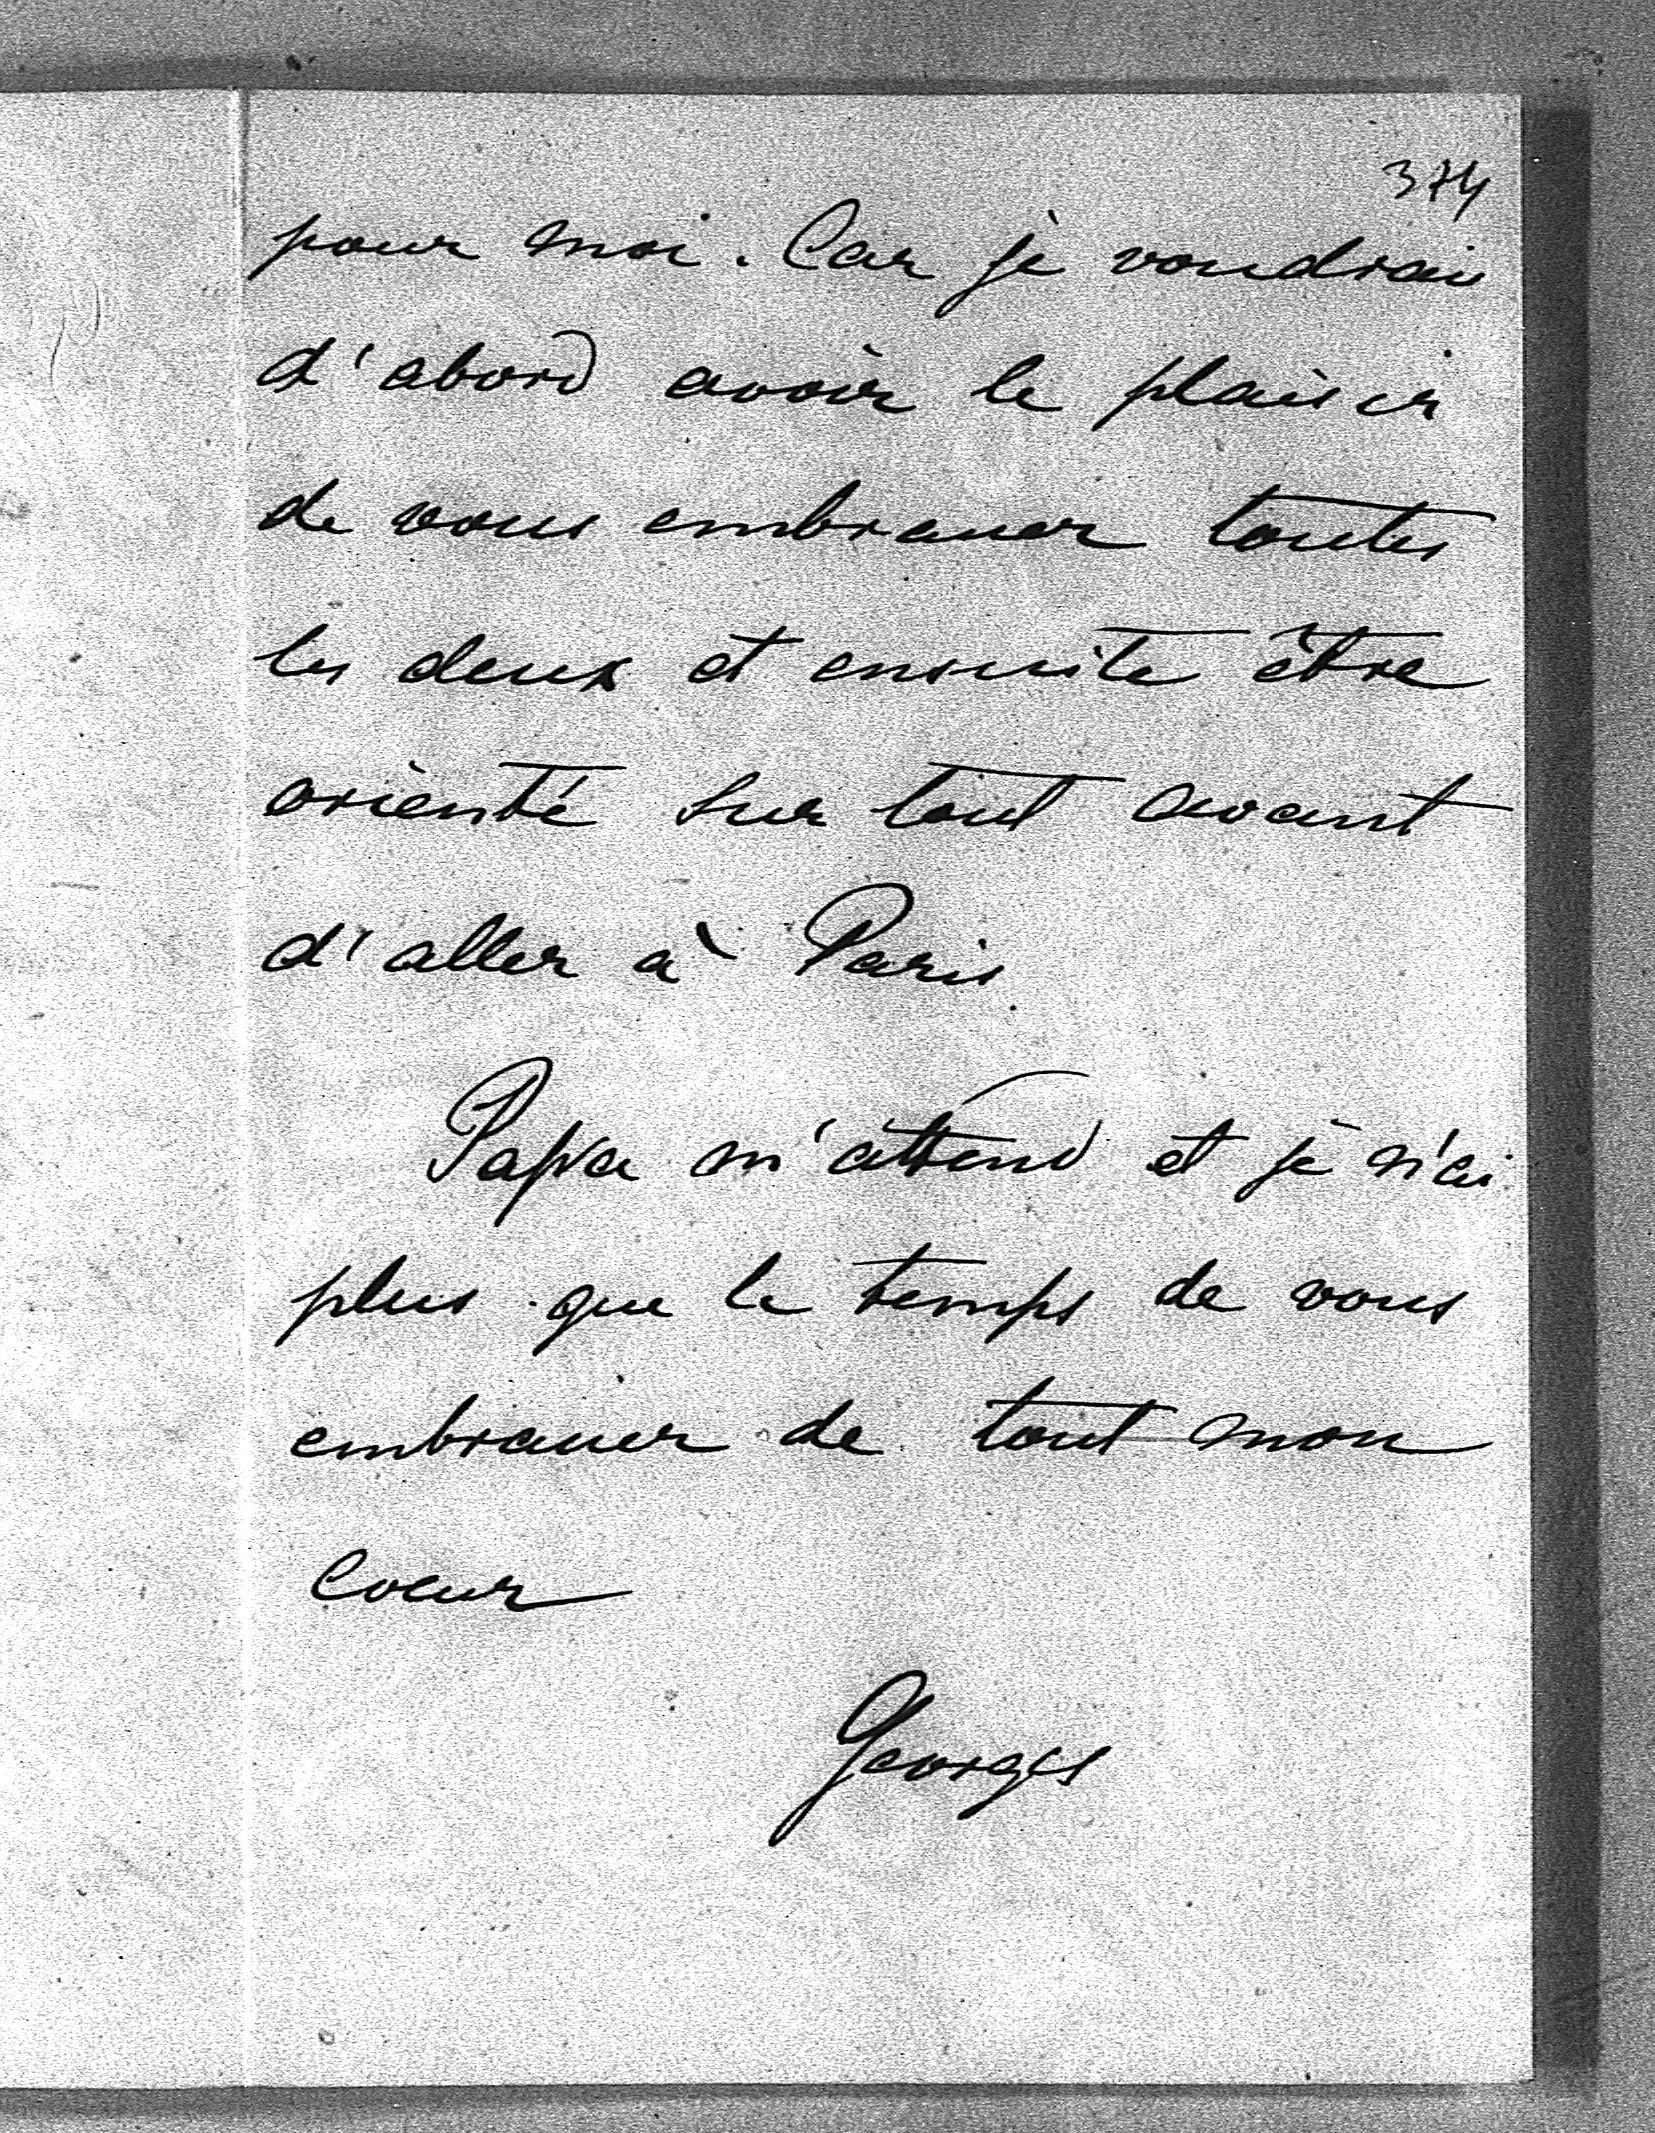 374
pour moi. Car je voudrais
d'abord avoir le plaisir
de vous embrasser toutes
les deux et ensuite être
orienté sur tout avant
d'aller à Paris.
Papa m'attend et je n'ai
plus que le temps de vous
embrasser de tout mon
coeur
Georges